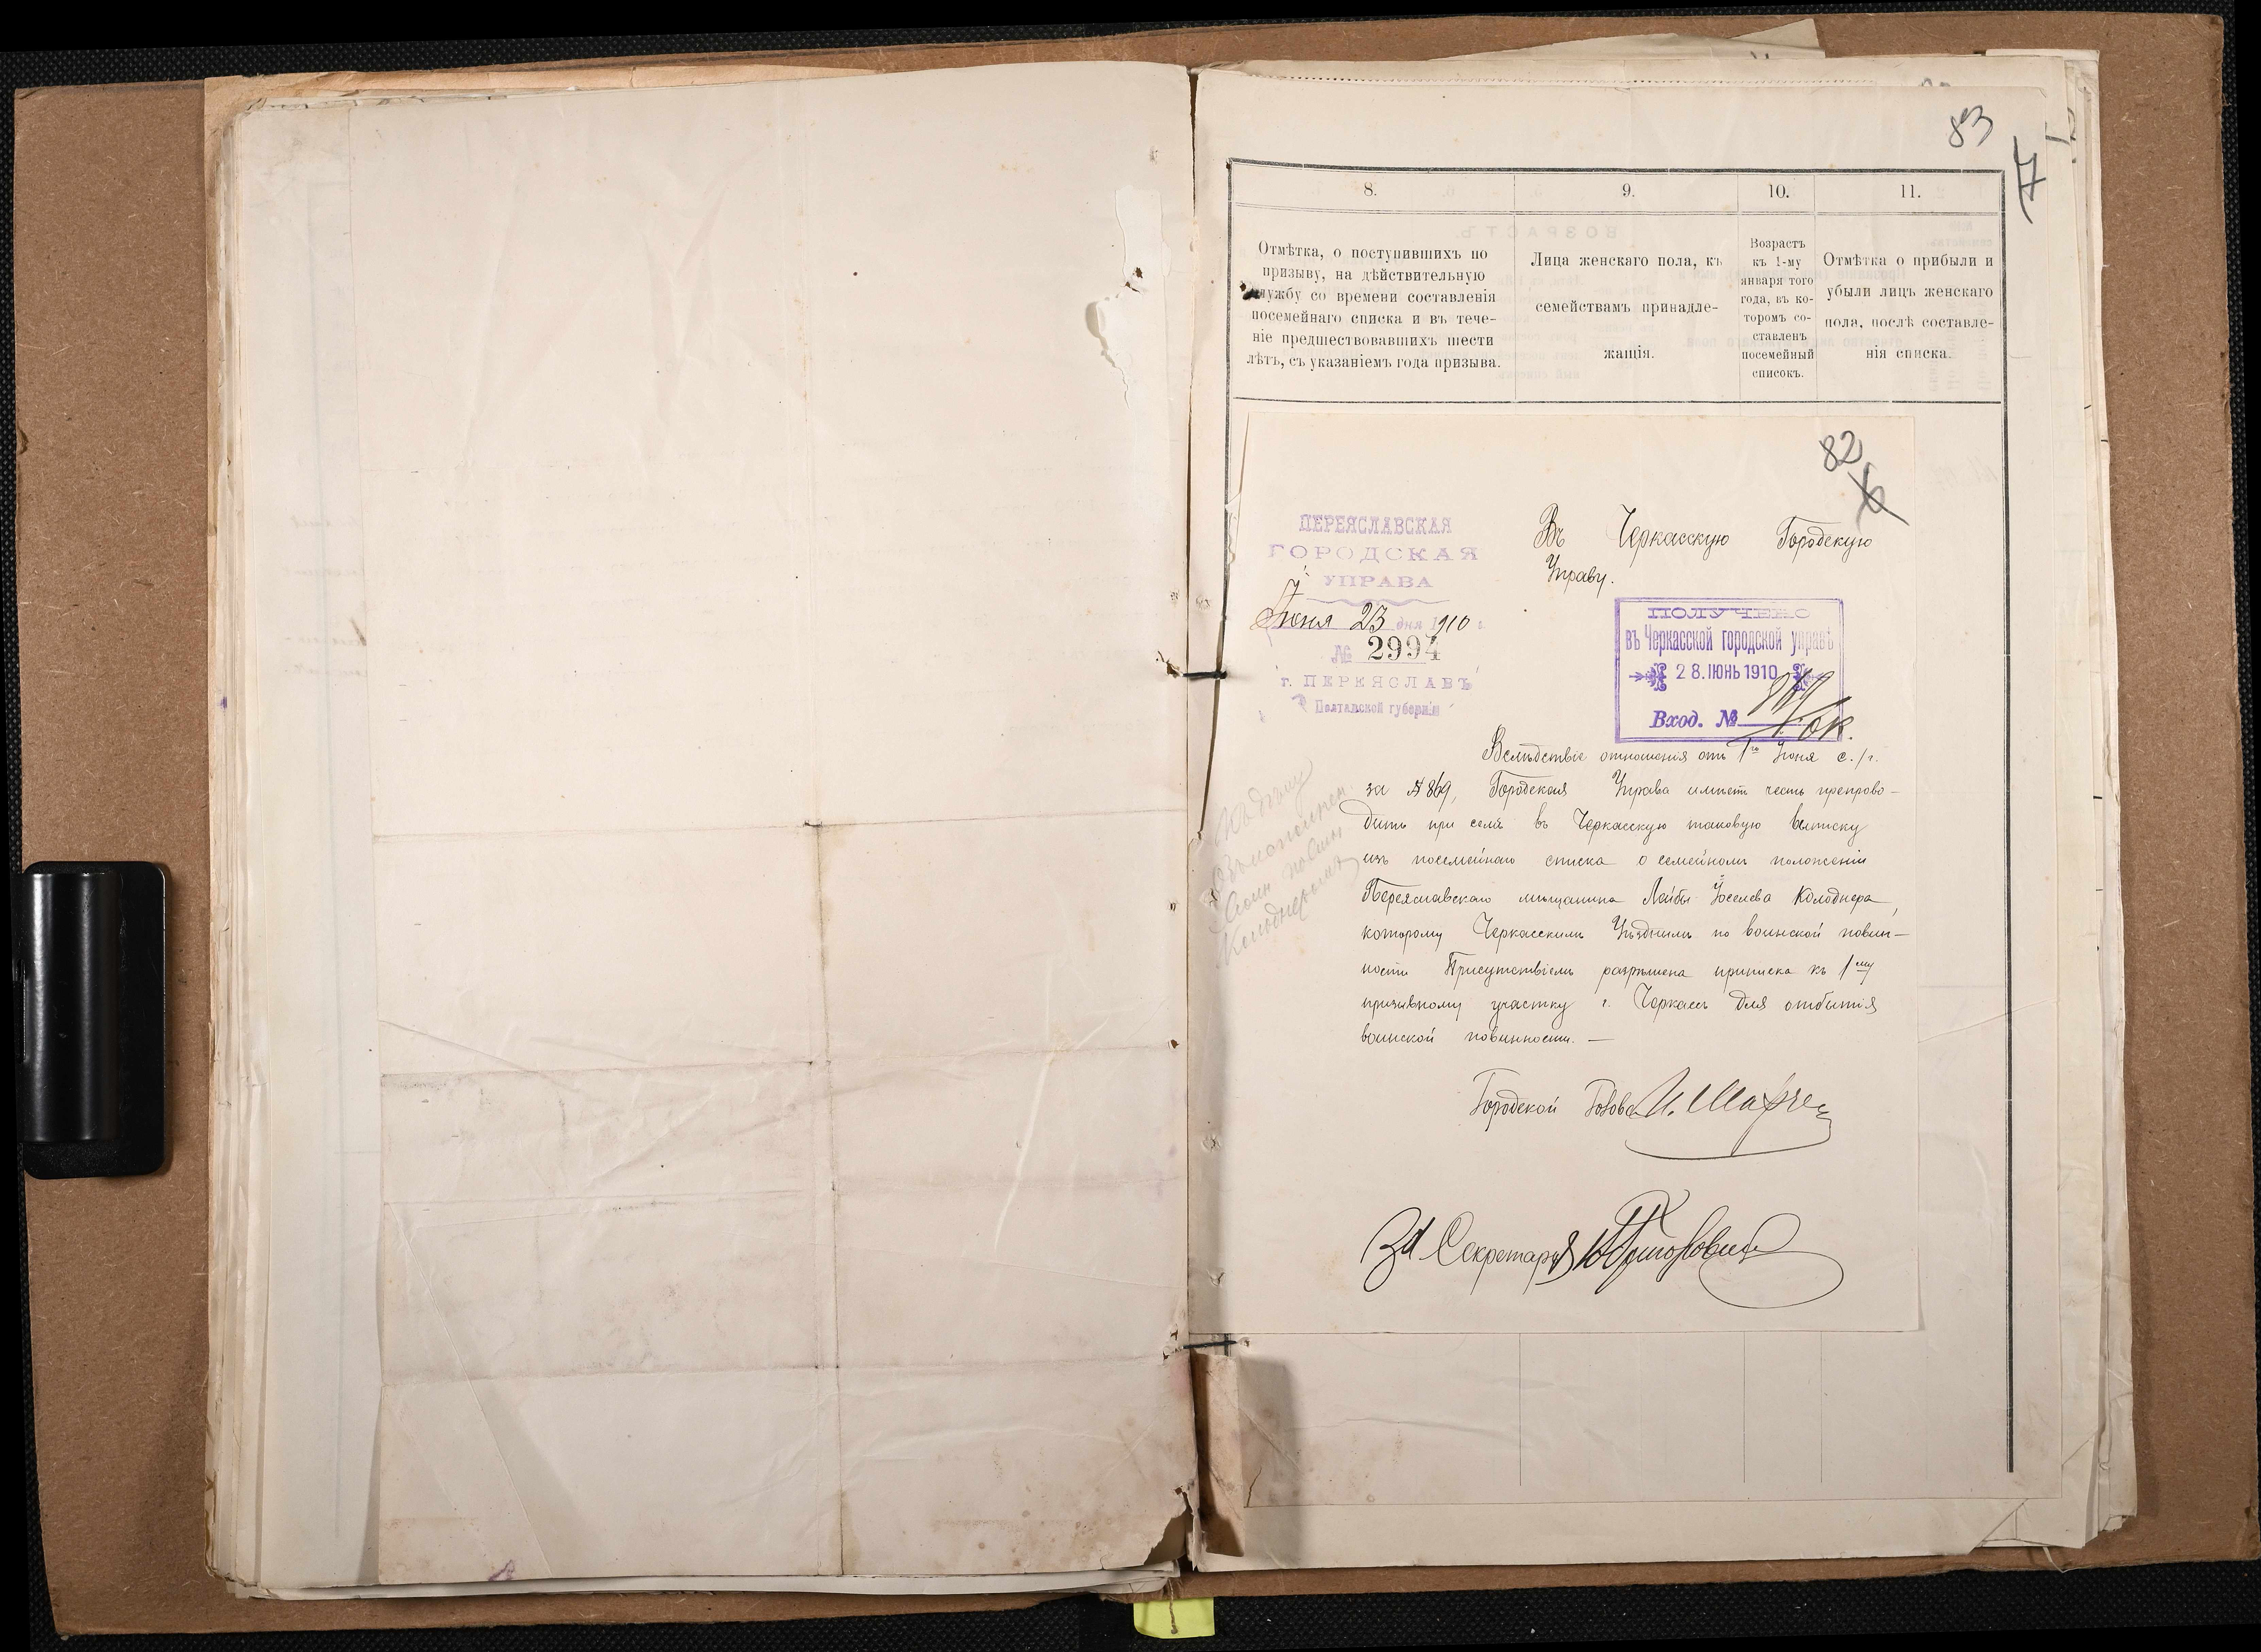 83
8.
9.
10.
11.
Отмѣтка, о поступившихъ по
призыву, на дѣйствительную
службу со времени составленія
посемейнаго списка и въ тече-
ніе предшествовавшихъ шести
лѣтъ, съ указаніемъ года призыва.
Лица женскаго пола, къ
семействамъ принадле-
жащія.
Возрастъ
къ 1-му
января того
года, въ ко-
торомъ со-
ставленъ
посемейный
списокъ.
Отмѣтка о прибыли и
убыли лицъ женскаго
пола, послѣ составле-
нія списка.
82
ПЕРЕЯСЛАВСКАЯ
ГОРОДСКАЯ
УПРАВА
Іюня 23 дня 1910 г.
№ 2994
г. ПЕРЕЯСЛАВЪ
Полтавской губерніи
Въ Черкасскую Городскую
Управу.
ПОЛУЧЕНО
въ Черкасской городской управѣ
28.ІЮНЬ 1910
Вход. №
Вслѣдствіе отношенія отъ 1го Іюня с./г.
за № 869, Городская Управа имѣетъ честь препрово-
дить при семъ въ Черкасскую таковую выписку
изъ посемейнаго списка о семейномъ положеніи
Переяславскаго мѣщанина Лейбы Іоселева Колоднера,
которому Черкасскимъ Уѣзднымъ по воинской повин-
ности Присутствіемъ разрѣшена приписка къ 1му
призывному участку г. Черкассъ для отбытія
воинской повинности. —
Городской Голова
За Секретаря